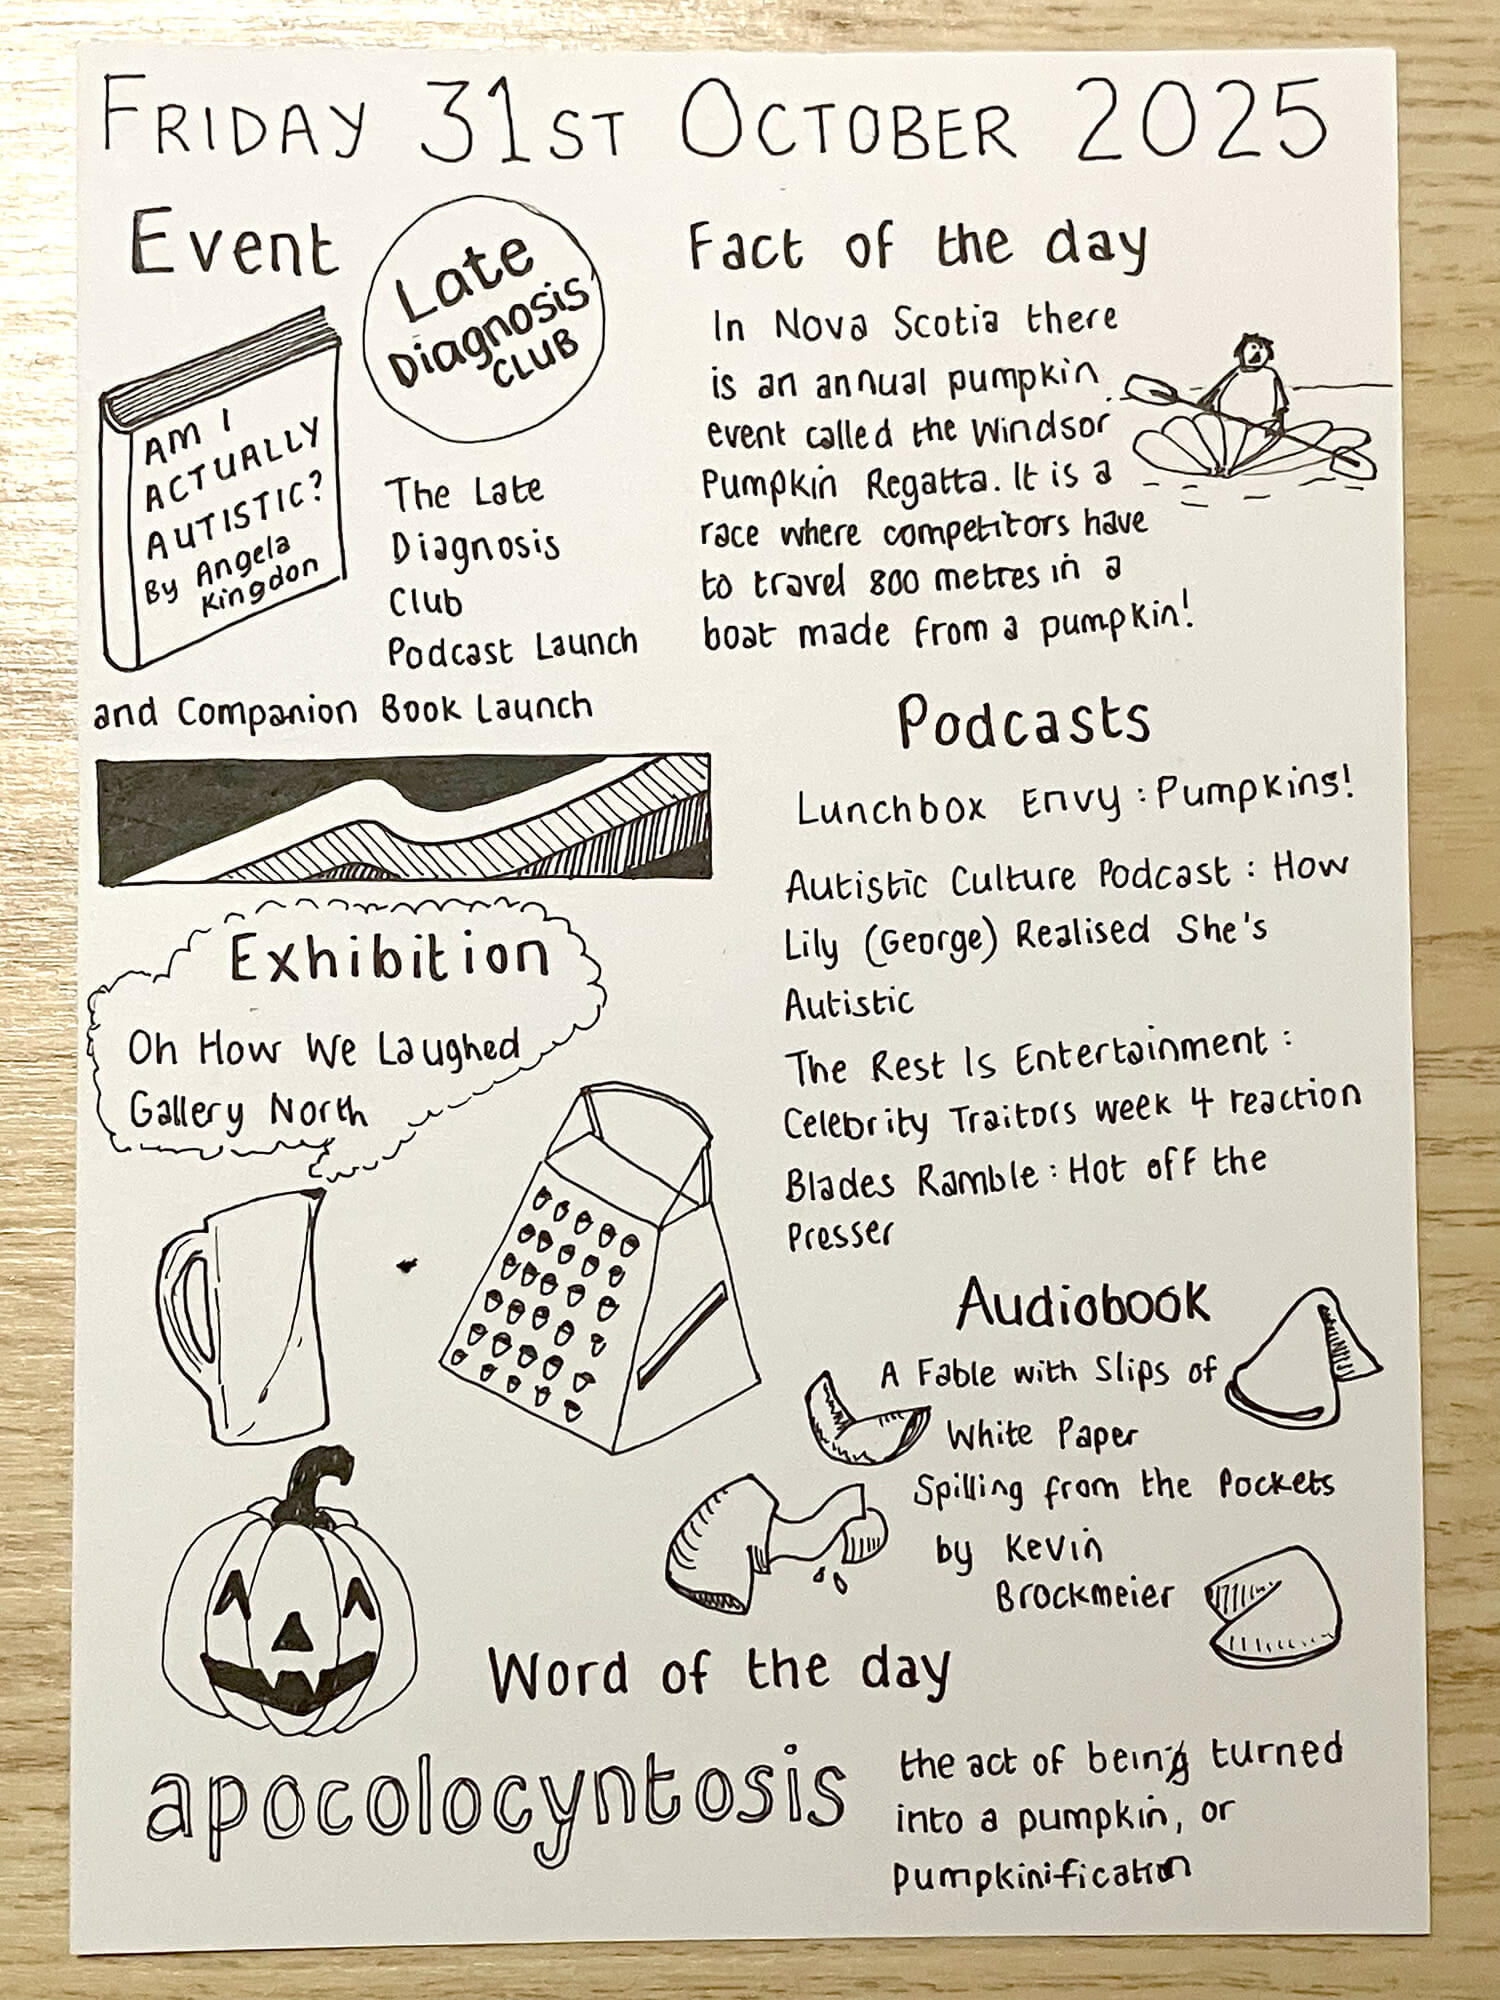 FRIDAY 31ST OCTOBER 2025
Event
Late
Diagnosis
CLUB
AM I
ACTUALLY
AUTISTIC?
By Angela
Kingdon
The Late
Diagnosis
Club
Podcast Launch
and Companion Book Launch
Fact of the day
In Nova Scotia there
is an annual pumpkin
event called the Windsor
Pumpkin Regatta. It is a
race where competitors have
to travel 800 metres in a
boat made from a pumpkin!
Podcasts
Lunchbox Envy : Pumpkins!
Autistic Culture Podcast : How
Lily (George) Realised She's
Autistic
The Rest Is Entertainment :
Celebrity Traitors week 4 reaction
Blades Ramble : Hot off the
Presser
Exhibition
Oh How We Laughed
Gallery North
Audiobook
A Fable with Slips of
White Paper
Spilling from the Pockets
by Kevin
Brockmeier
Word of the day
apocolocyntosis
the act of being turned
into a pumpkin, or
pumpkinification